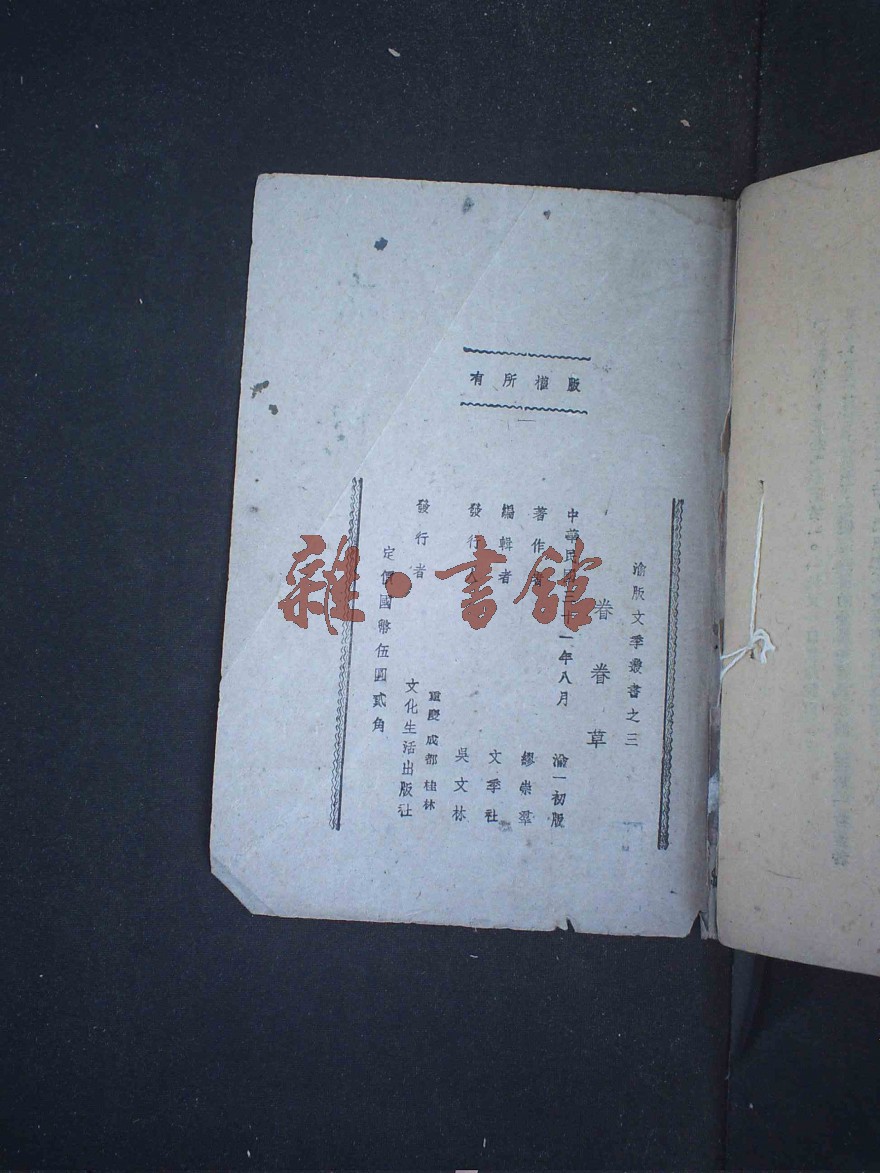 版權所有
渝版文季叢書之三
眷眷草
中華民國三十一年八月 渝一初版
著作者 繆崇羣
編輯者 文季社
發行人 吳文林
發行者 重慶 成都 桂林
文化生活出版社
定價國幣伍圓貳角
雜·書館